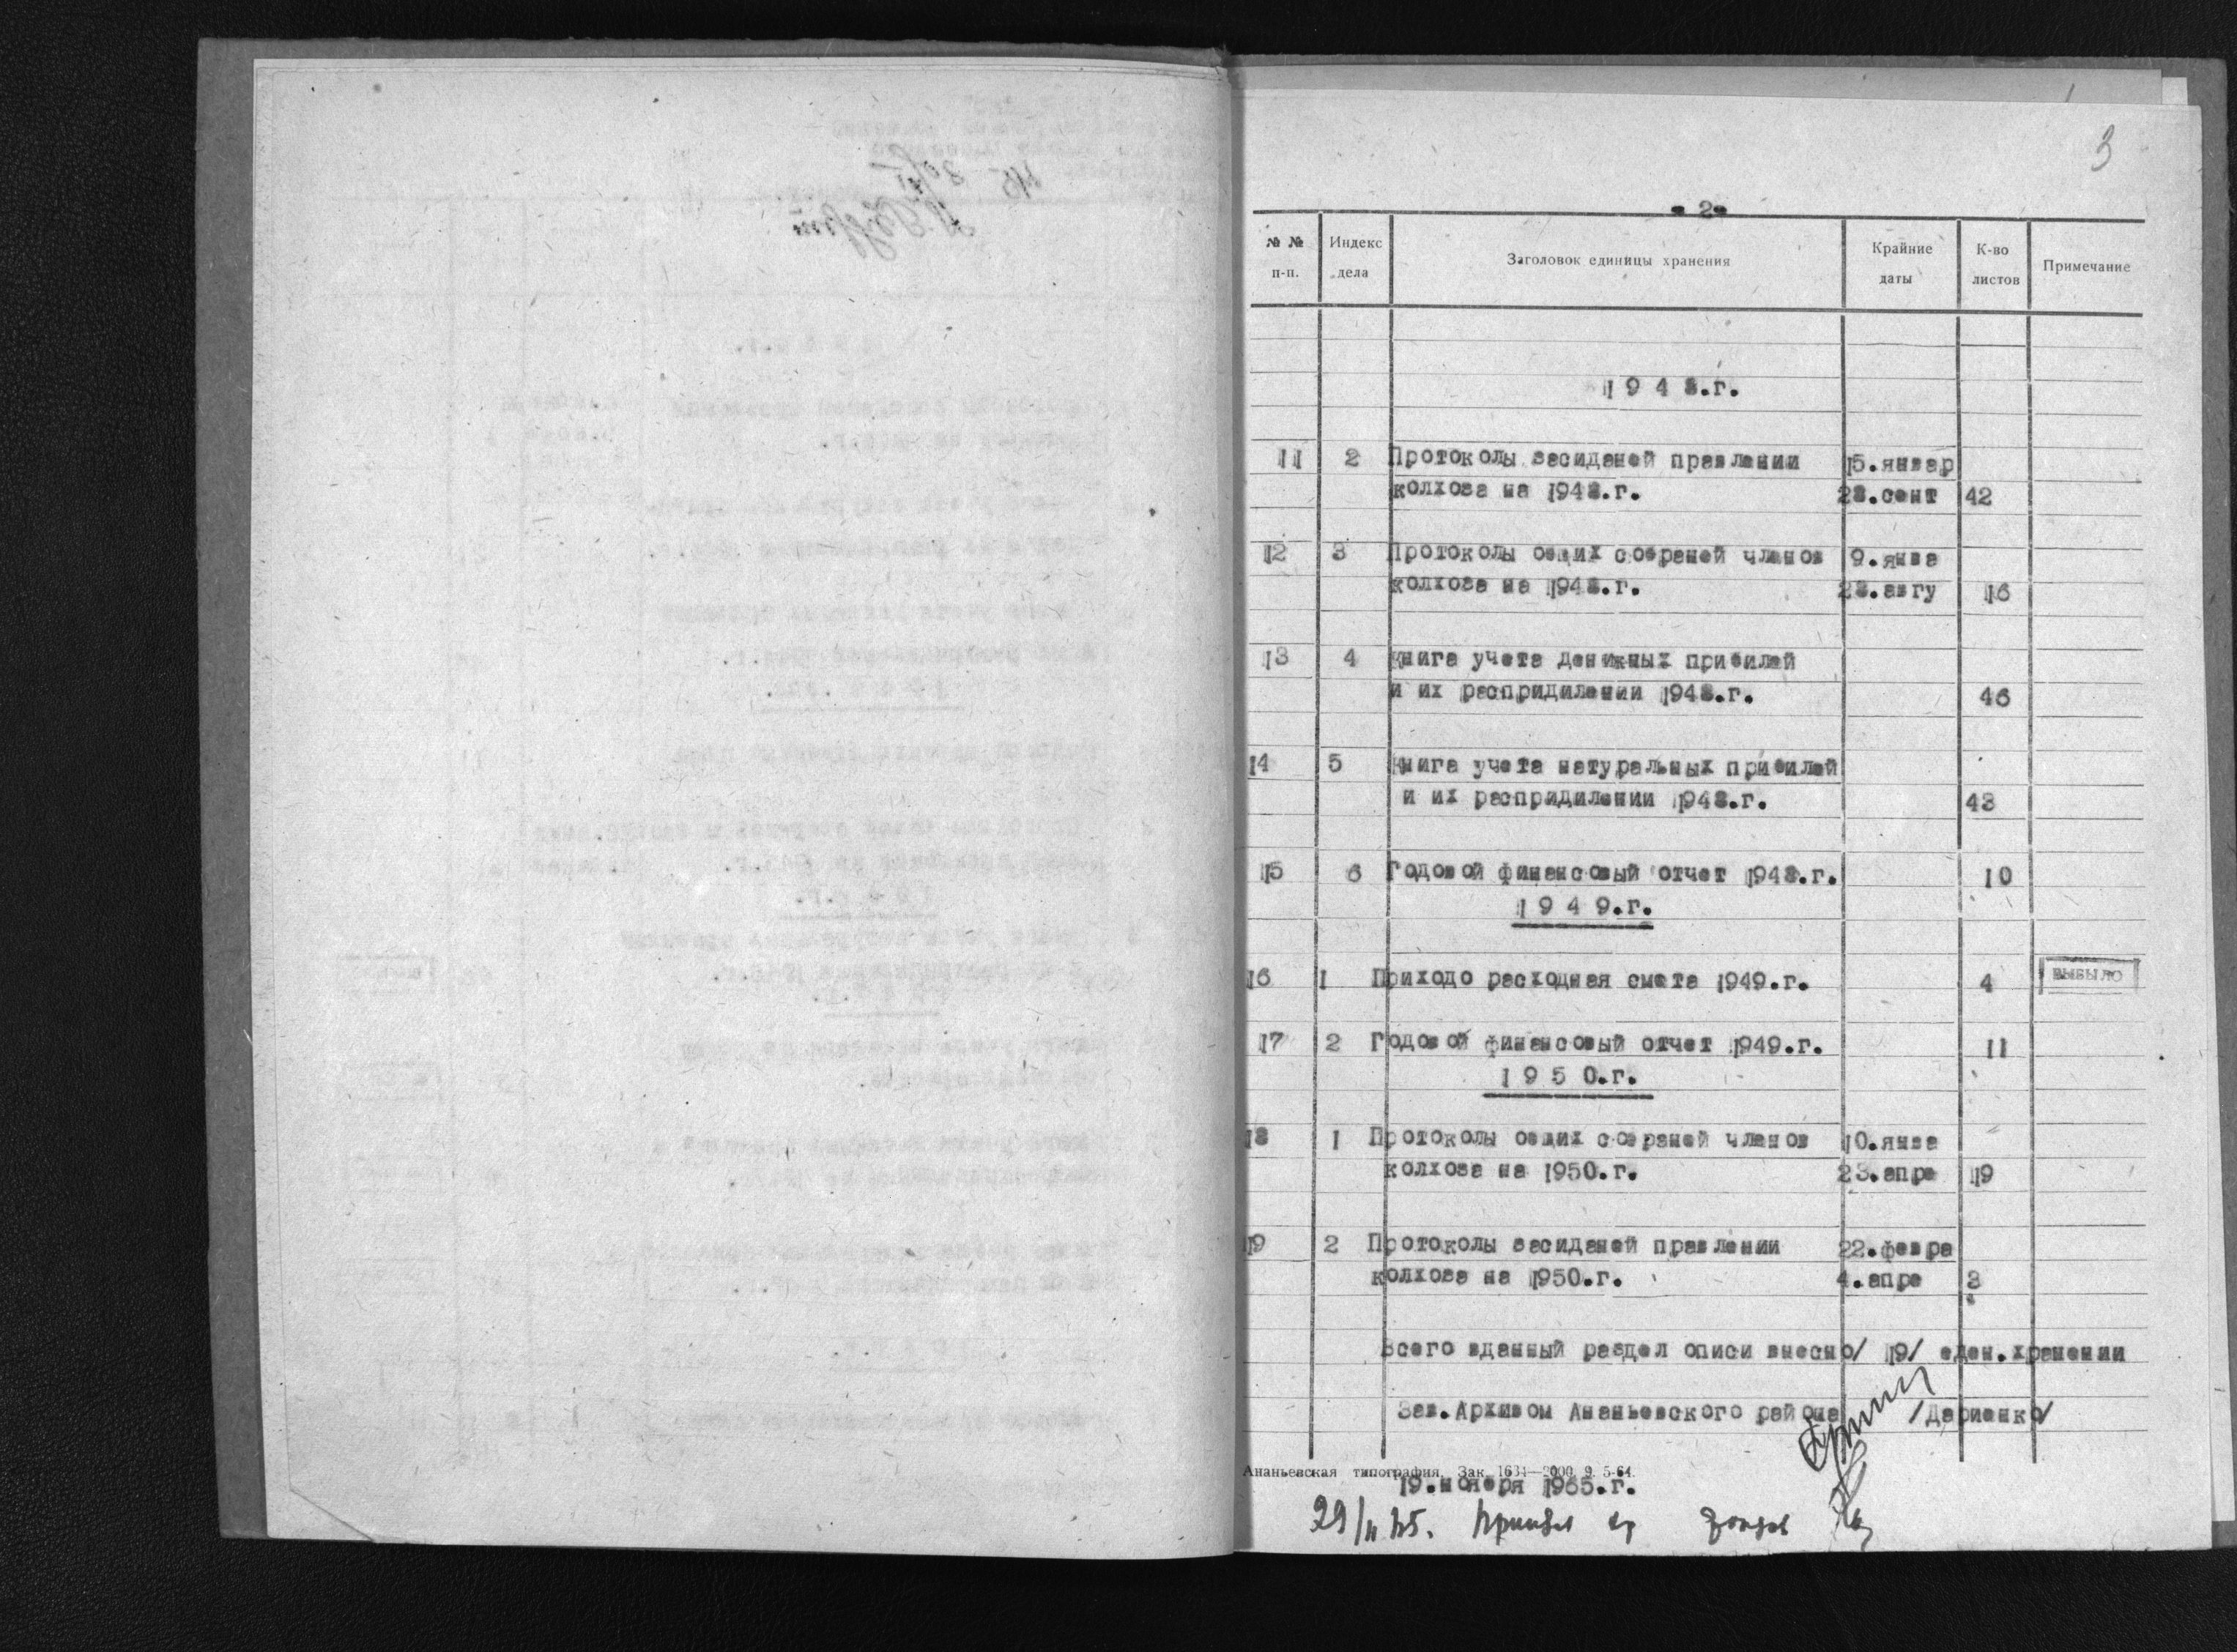 3
- 2 -
№ № п-п. Индекс дела Заголовок единицы хранения Крайние даты К-во листов Примечание
1 9 4 8.г.
11 2 Протоколы засиданей правлении 15.январ
колхоза на 1948.г. 28.сент 42
12 3 Протоколы общих собраней членов 9.янва
колхоза на 1948.г. 28.авгу 16
13 4 Книга учета денижных прибилей
и их распридилении 1948.г. 46
14 5 Книга учета натуральных прибилей
и их распридилении 1948.г. 43
15 6 Годовой финансовый отчет 1948.г. 10
1 9 4 9.г.
16 1 Приходо расходная смета 1949.г. 4 ВЫБЫЛО
17 2 Годовой финансовый отчет 1949.г. 11
1 9 5 0.г.
18 1 Протоколы общих собраней членов 10.янва
колхоза на 1950.г. 23.апре 19
19 2 Протоколы засиданей правлении 22.февра
колхоза на 1950.г. 4.апре 3
Всего вданный раздел описи внесно/ 19/ еден.хранении
Зав.Архивом Ананьевского района /Дариенко/
Ананьевская типография. Зак. 1634—2000 9. 5-64.
19.ноября 1965.г.
29/II